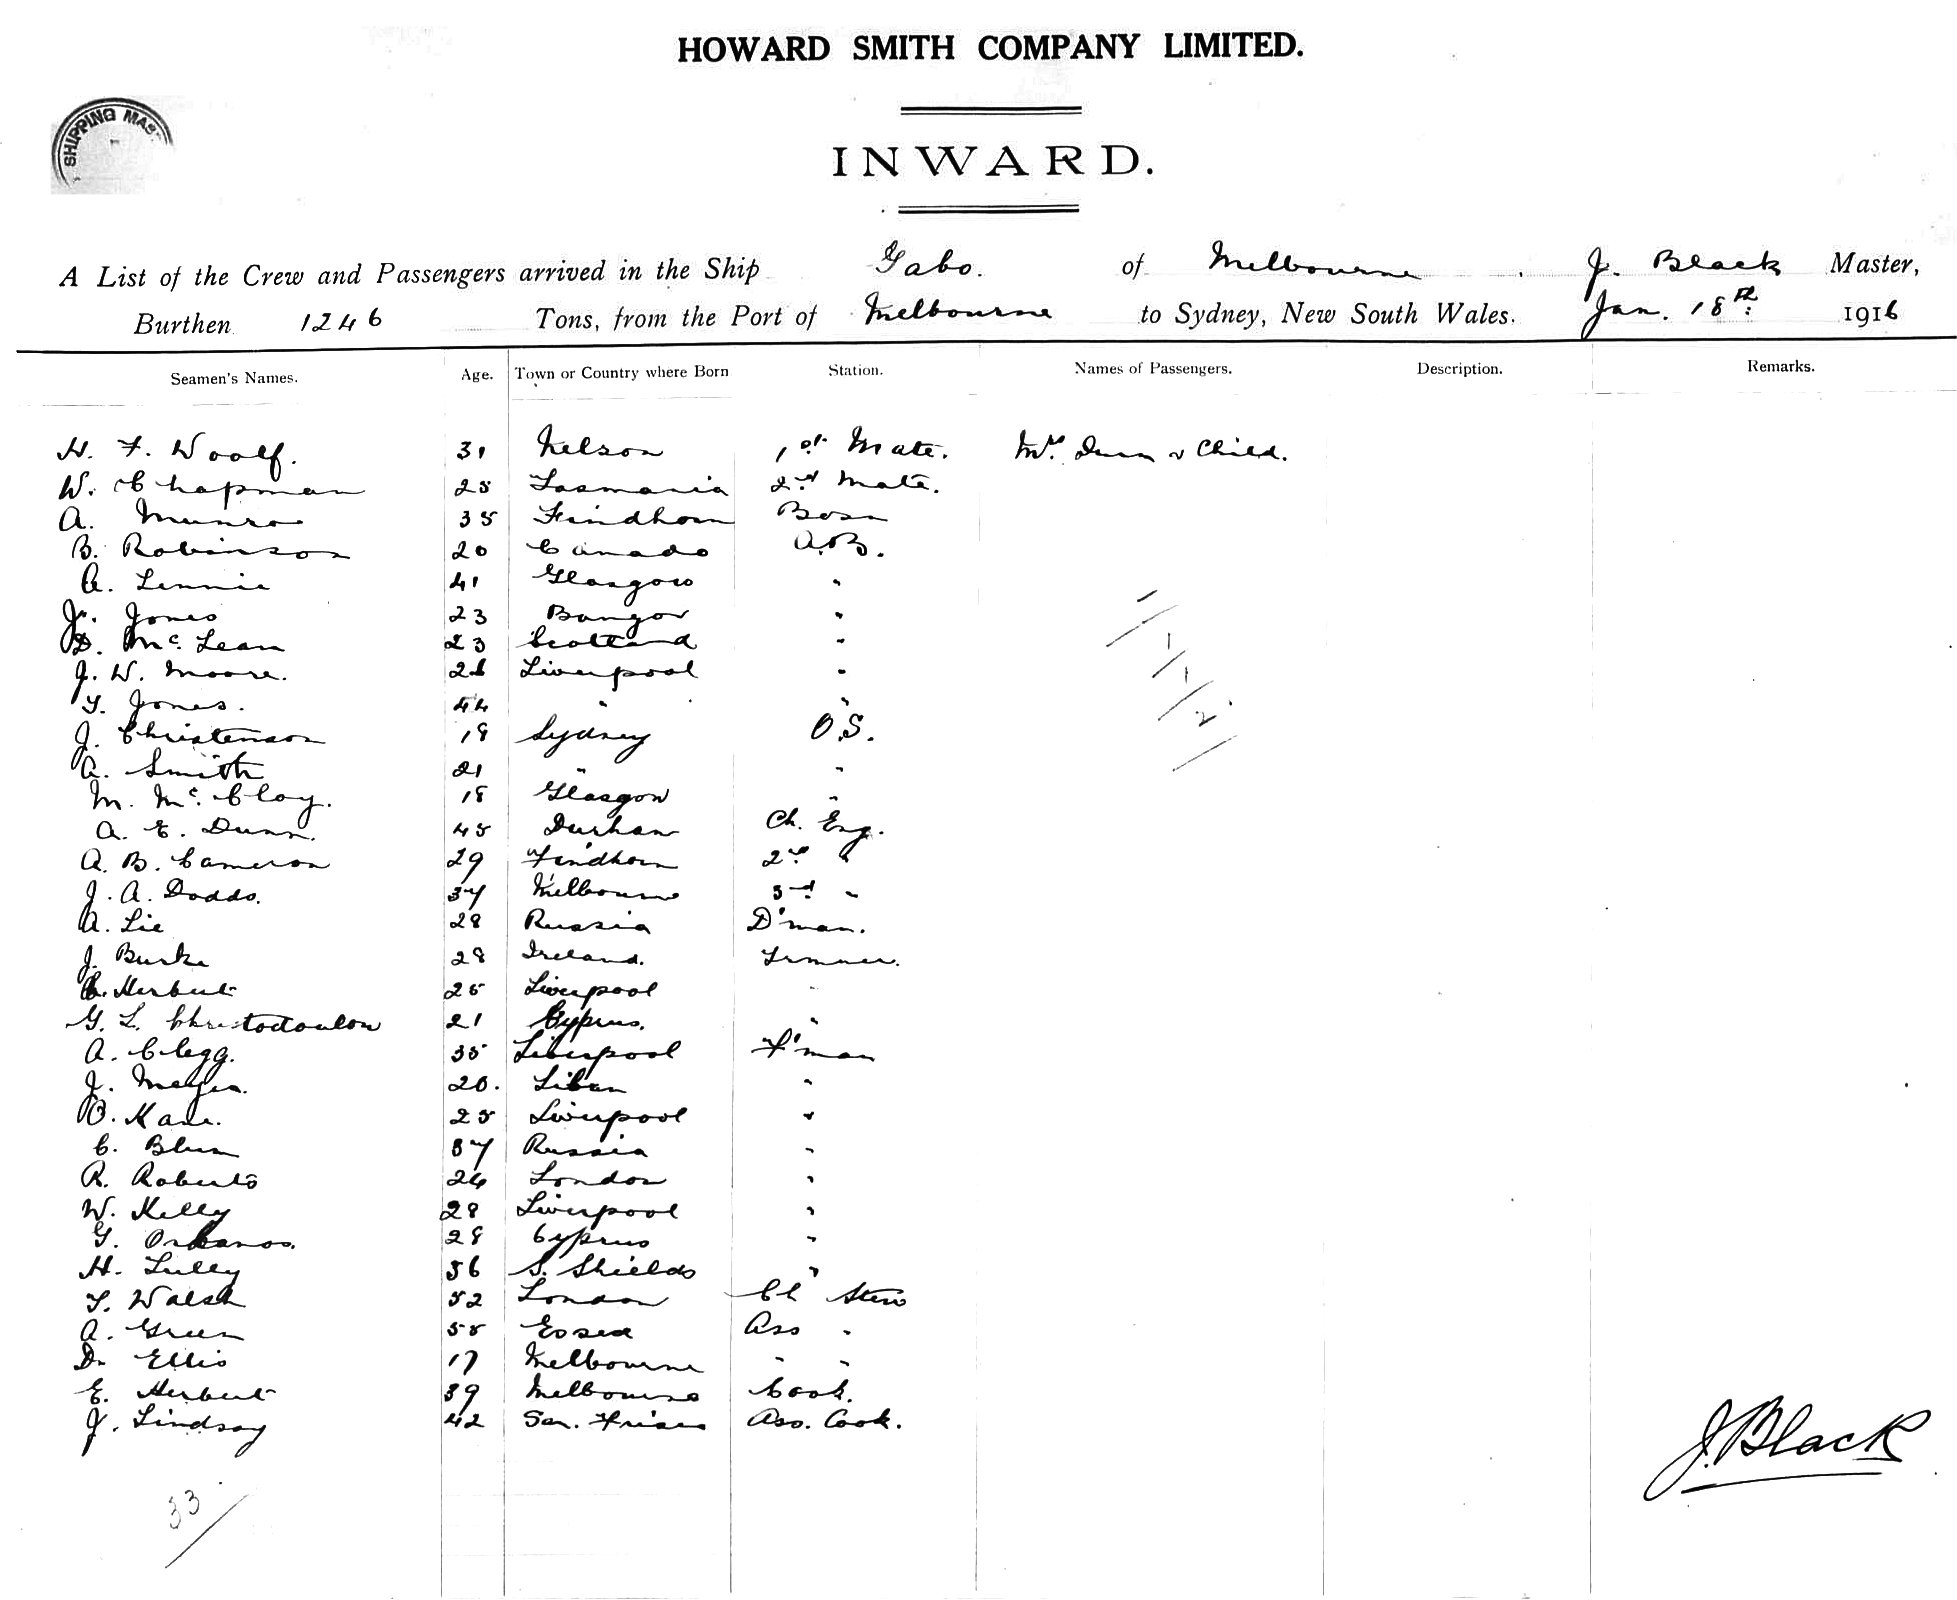 HOWARD SMITH COMPANY LIMITED.
SHIPPING MAS
INWARD.
A List of the Crew and Passengers arrived in the Ship Gabo. of Melbourne J. Black Master,
Burthen 1246 Tons, from the Port of Melbourne to Sydney, New South Wales. Jan. 18th 1916
Seamen's Names. Age. Town or Country where Born Station. Names of Passengers. Description. Remarks.
H. F. Woolf. 31 Nelson 1st Mate. Mrs Dunn & Child.
W. Chapman 25 Tasmania 2nd Mate.
A. Munro 35 Findhorn Bosn
B. Robinson 20 Canada A.B.
A. Lennie 41 Glasgow "
J. Jones 23 Bangor "
D. McLean 23 Scotland "
J. W. Moore. 26 Liverpool "
T. Jones. 44 " "
J. Christenson 19 Sydney O.S.
A. Smith 21 " "
M. McCloy. 18 Glasgow "
A. E. Dunn. 45 Durham Ch. Eng.
A. B. Cameron 29 Findhorn 2nd "
J. A. Dodds. 37 Melbourne 3rd "
A. Lie 28 Russia D'man.
J. Burke 28 Ireland. Trimmer.
C. Herbert 25 Liverpool "
G. L. Christodoulou 21 Cyprus. "
A. Clegg. 35 Liverpool F'man
J. 20. "
O. Kane. 25 Liverpool "
C. Blum 37 Russia "
R. Roberts 24 London "
W. Kelly 28 Liverpool "
G. Orbanos. 28 Cyprus "
H. Lilley 56 S. Shields "
T. Walsh 52 London Ch Stew
A. Green 55 Essex Ass "
D. Ellis 17 Melbourne " "
E. Herbert 39 Melbourne Cook.
J. Lindsay 42 San. Frisco Ass. Cook.
J. Black
33